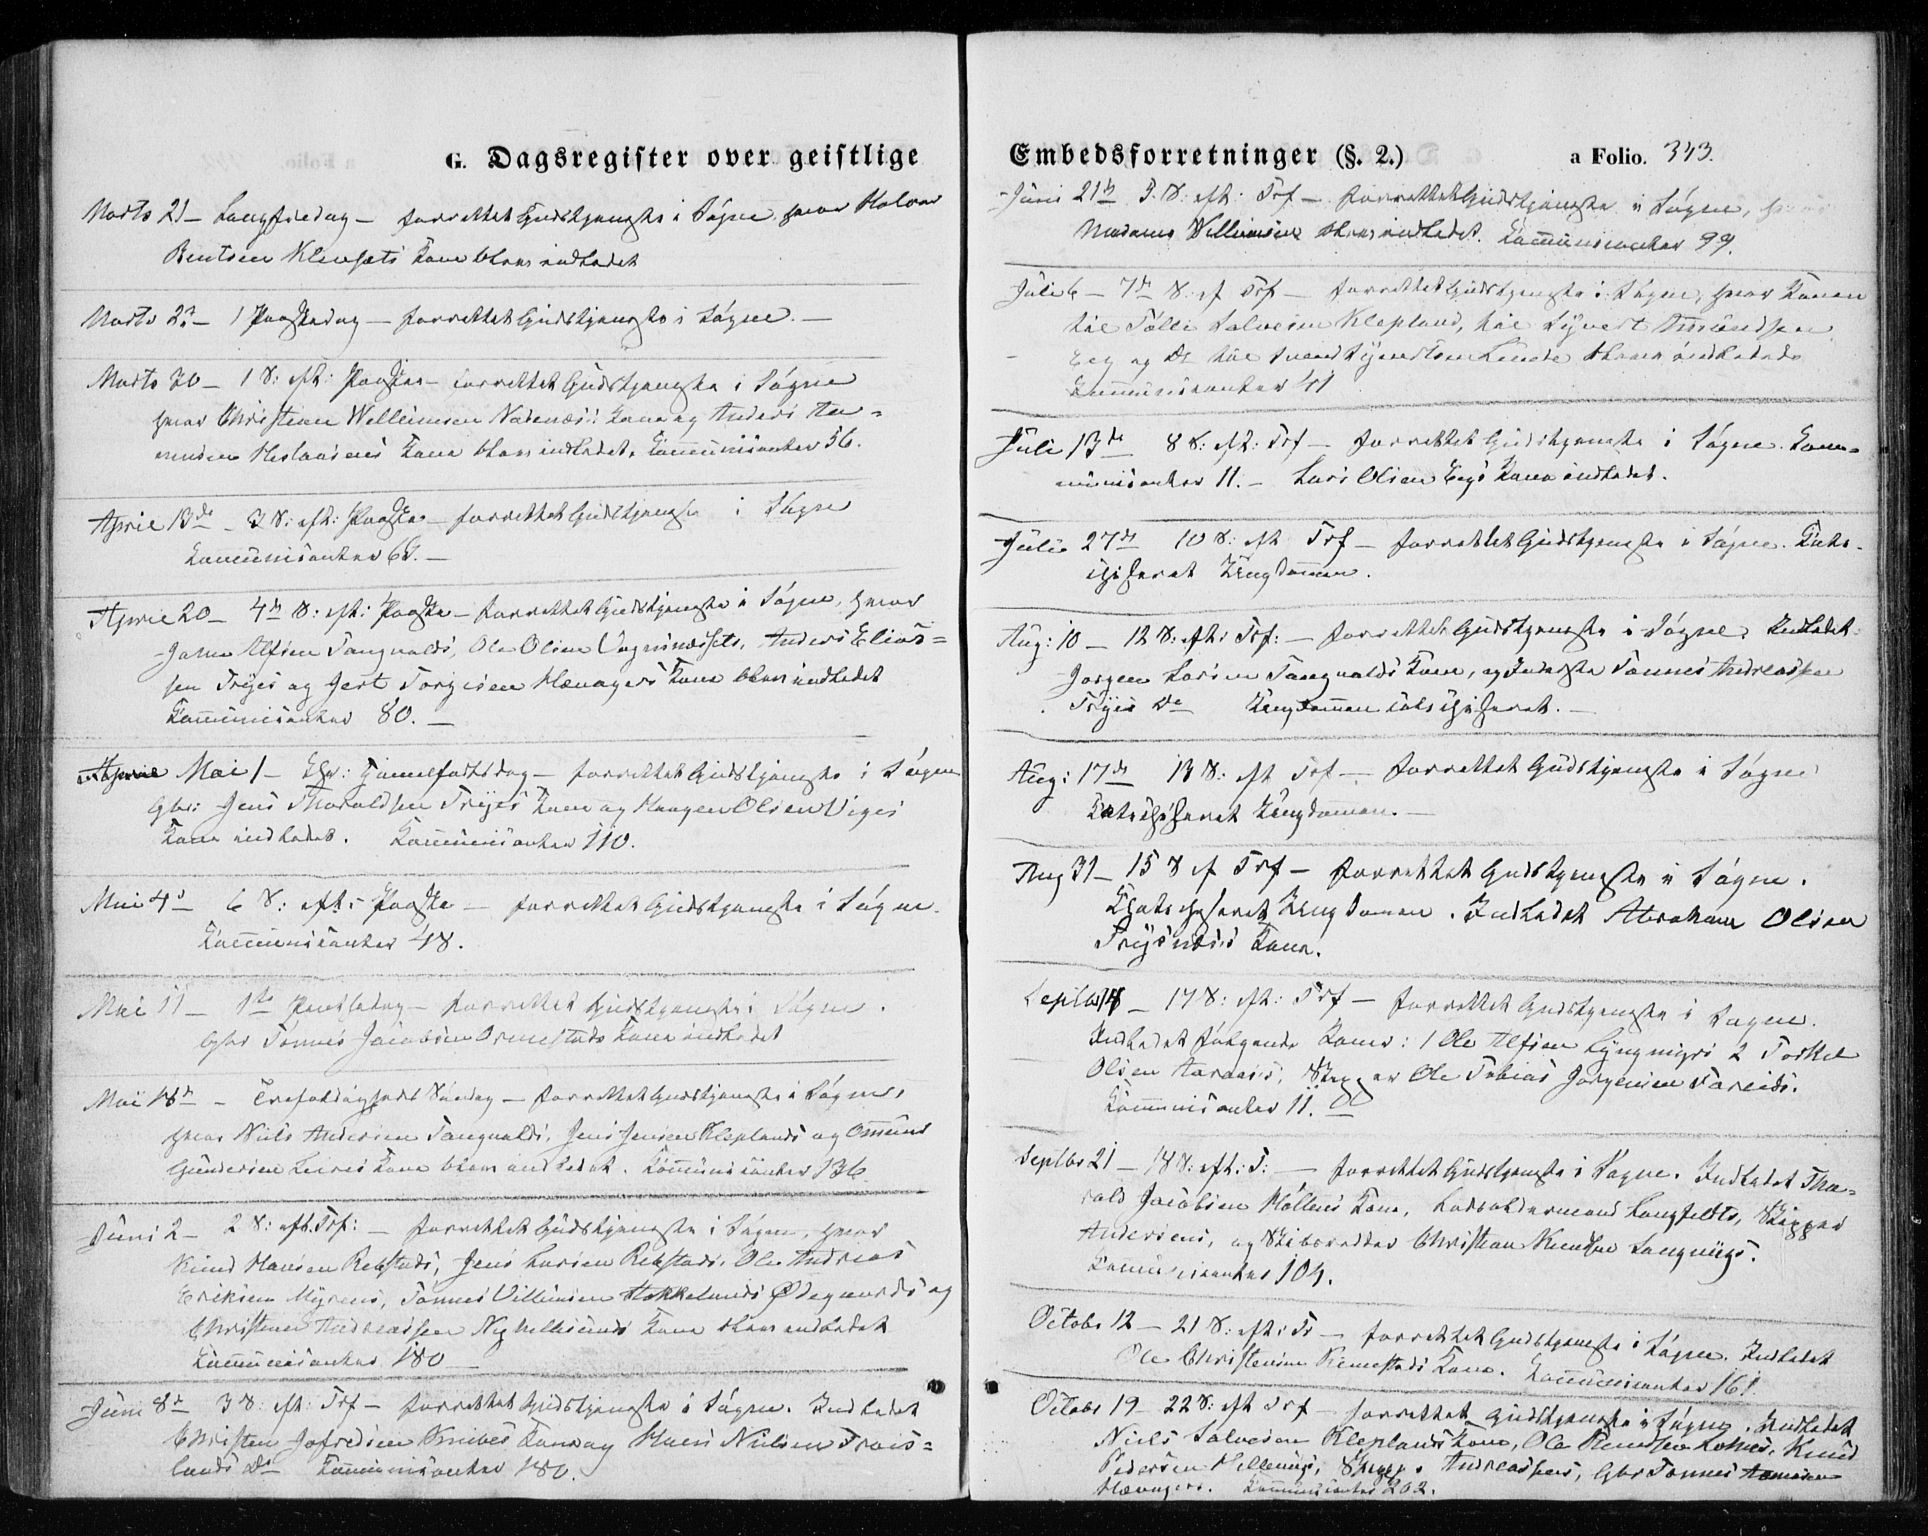 G. Dagsregister over geistlige
Marts 21 – Langfredag – forrettet Gudstjeneste i Søgne, hvor Halvor
Bentsen Klevsets Kone blev indledet
Marts 23 – 1 Paaskedag – forrettet Gudstjeneste i Søgne. –
Marts 30 – 1 S: eft: Paaske – forrettet Gudstjeneste i Søgne
hvor Christian Wellumsen Kone og Anders
Kone blev indledet. Communicanter 56.
April 13de – 3 S: eft: Paaske – forrettet Gudstjeneste i Søgne
Communicanter
April 20 – 4de S: eft: Paaske – forrettet Gudstjeneste i Søgne, hvor
Alfsen Tangvalds, Ole Olsen Anders Elias=
sen Tryes og Gert Torgersen Kone blev indledet
Communicanter 80. –
Mai 1 – – forrettet Gudstjeneste i Søgne
Gbr: Jens Thoraldsen Tryes Kone og Haagen Olsen
Kone indledet. Communicanter 110.
Mai 4de 6 S: eft: Paaske – forrettet Gudstjeneste i Søgne.
Communicanter 48.
Mai 11 – 1ste Pintsedag – forrettet Gudstjeneste i Søgne.
Gbr Tønnes Jacobsen Kone indledet
Mai 18de – Trefoldigheds Søndag – forrettet Gudstjeneste i Søgne,
hvor Niels Andersen Tangvalds, Jens Jensen Kleplands og Omund
Gundersen Kone blev indledet. Communicanter 136
Juni 2 – 2 S: eft. Trf: – forrettet Gudstjeneste i Søgne, hvor
Knud Hansen Repstads, Jens Larsen Repstads, Ole Andreas
Eriksen Myrens, Tønnes Villumsen Ødegaards og
Christen Andreassen Kone blev indledet
Communicanter 180 –
Juni 8de 3 S: eft: Trf – forrettet Gudstjeneste i Søgne. Indledet
Christen Jofredsen Knibes Kone og Hans Nielsen Trois=
lands Do Communicanter 180.
Embedsforretninger (§. 2.) a Folio. 343.
Juni 3. S: eft: Trf – forrettet Gudstjeneste i Søgne, hvor
Madame blev indledet. Communicanter 99.
Juli 6 – 7de S: ef Trf – forrettet Gudstjeneste i Søgne, hvor Konen
til Salvesen Klepland, til Syvert Amundsen
Eeg og Do til Svend blev indledede
Communicanter 41
Juli 13de 8 S: eft: Trf – forrettet Gudstjeneste i Søgne. Com=
municanter 11. – Lars Olsen Eegs Kone indledet.
Juli 27de 10 S: eft Trf – forrettet Gudstjeneste i Søgne. Kate=
chiseret Ungdommen.
Aug: 10 – 12 S: eft: Trf: – forrettet Gudstjeneste i Søgne. Indledet
Jørgen Larsen Tangvalds Kone, og Tønnes Andreassen
Tryes Do Ungdommen catechiseret. –
Aug: 17de 13 S: eft Trf – forrettet Gudstjeneste i Søgne
Katechiseret Ungdommen. –
Aug 31 – 15 S ef Trf – forrettet Gudstjeneste i Søgne.
Katechiseret Ungdommen. Indledet Abraham Olsen
Trysnes's Kone.
Septbr 14 – 17 S: eft: Trf – forrettet Gudstjeneste i Søgne.
Indledet følgende Koner: 1 Ole Alfsen 2 Torkel
Olsen Aaros's, Skipper Ole Tobias Jørgensen
Communicanter 11.
Septbr 21 – 18 S: eft: T: – forrettet Gudstjeneste i Søgne. Indledet Tho=
rald Jacobsen Høllens Kone, Langfeldts, Skipper
Andersens, og Skibsreder Christian Knudsen
Communicanter 104.
Octobr 12 – 21 S: eft: Tr – forrettet Gudstjeneste i Søgne. Indledet
Ole Christensen Kone. Communicanter 161.
Octobr 19 – 22 S: eft Trf – forrettet Gudstjeneste i Søgne. Indledet
Niels Salvesen Kleplands Kone, Ole Knud
Pedersen Andreassens, Gbr Tønnes
Communicanter 202.